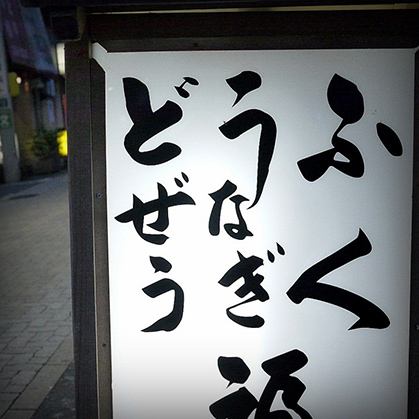 ふく
うなぎ
どぜう